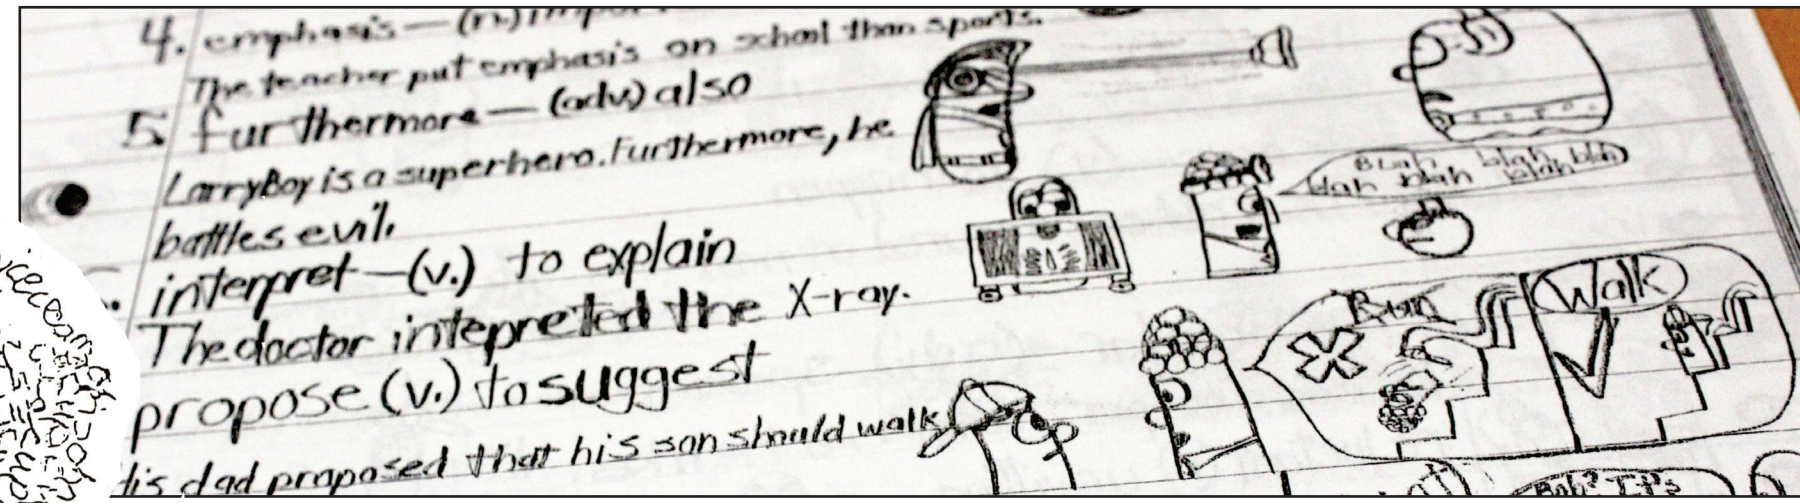 4. emphasis—(n.)
The teacher put emphasis on school than sports.
5. furthermore—(adv.) also
LarryBoy is a superhero. Furthermore, he
battles evil.
interpret—(v.) to explain
The doctor intepreted the X-ray.
propose (v.) to suggest
His dad proposed that his son should walk
Blah blah blah
blah blah blah
Run
Walk